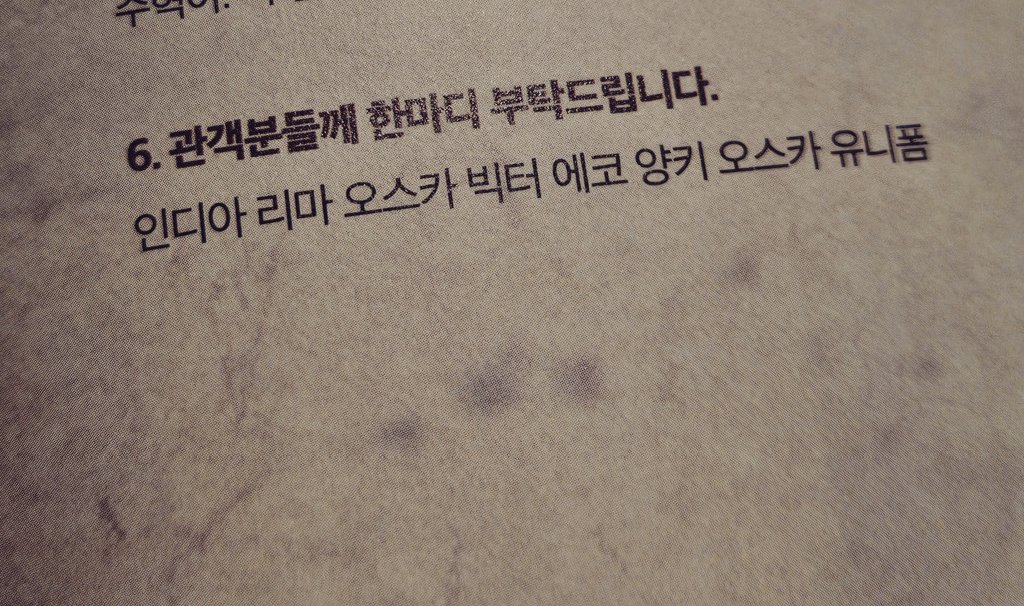 6. 관객분들께 한마디 부탁드립니다.
인디아 리마 오스카 빅터 에코 양키 오스카 유니폼